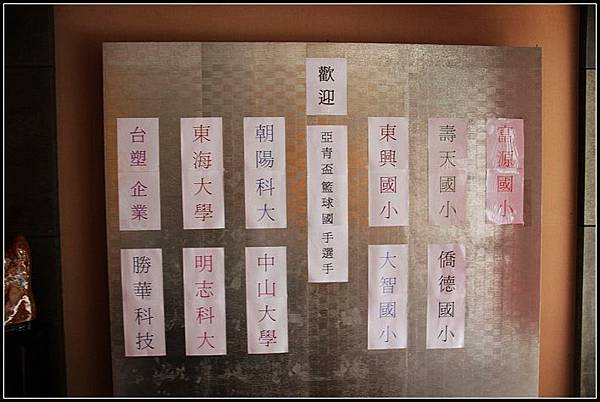 富源國小
壽天國小
僑德國小
東興國小
大智國小
歡迎
亞青盃籃球國手選手
朝陽科大
中山大學
東海大學
明志科大
台塑企業
勝華科技